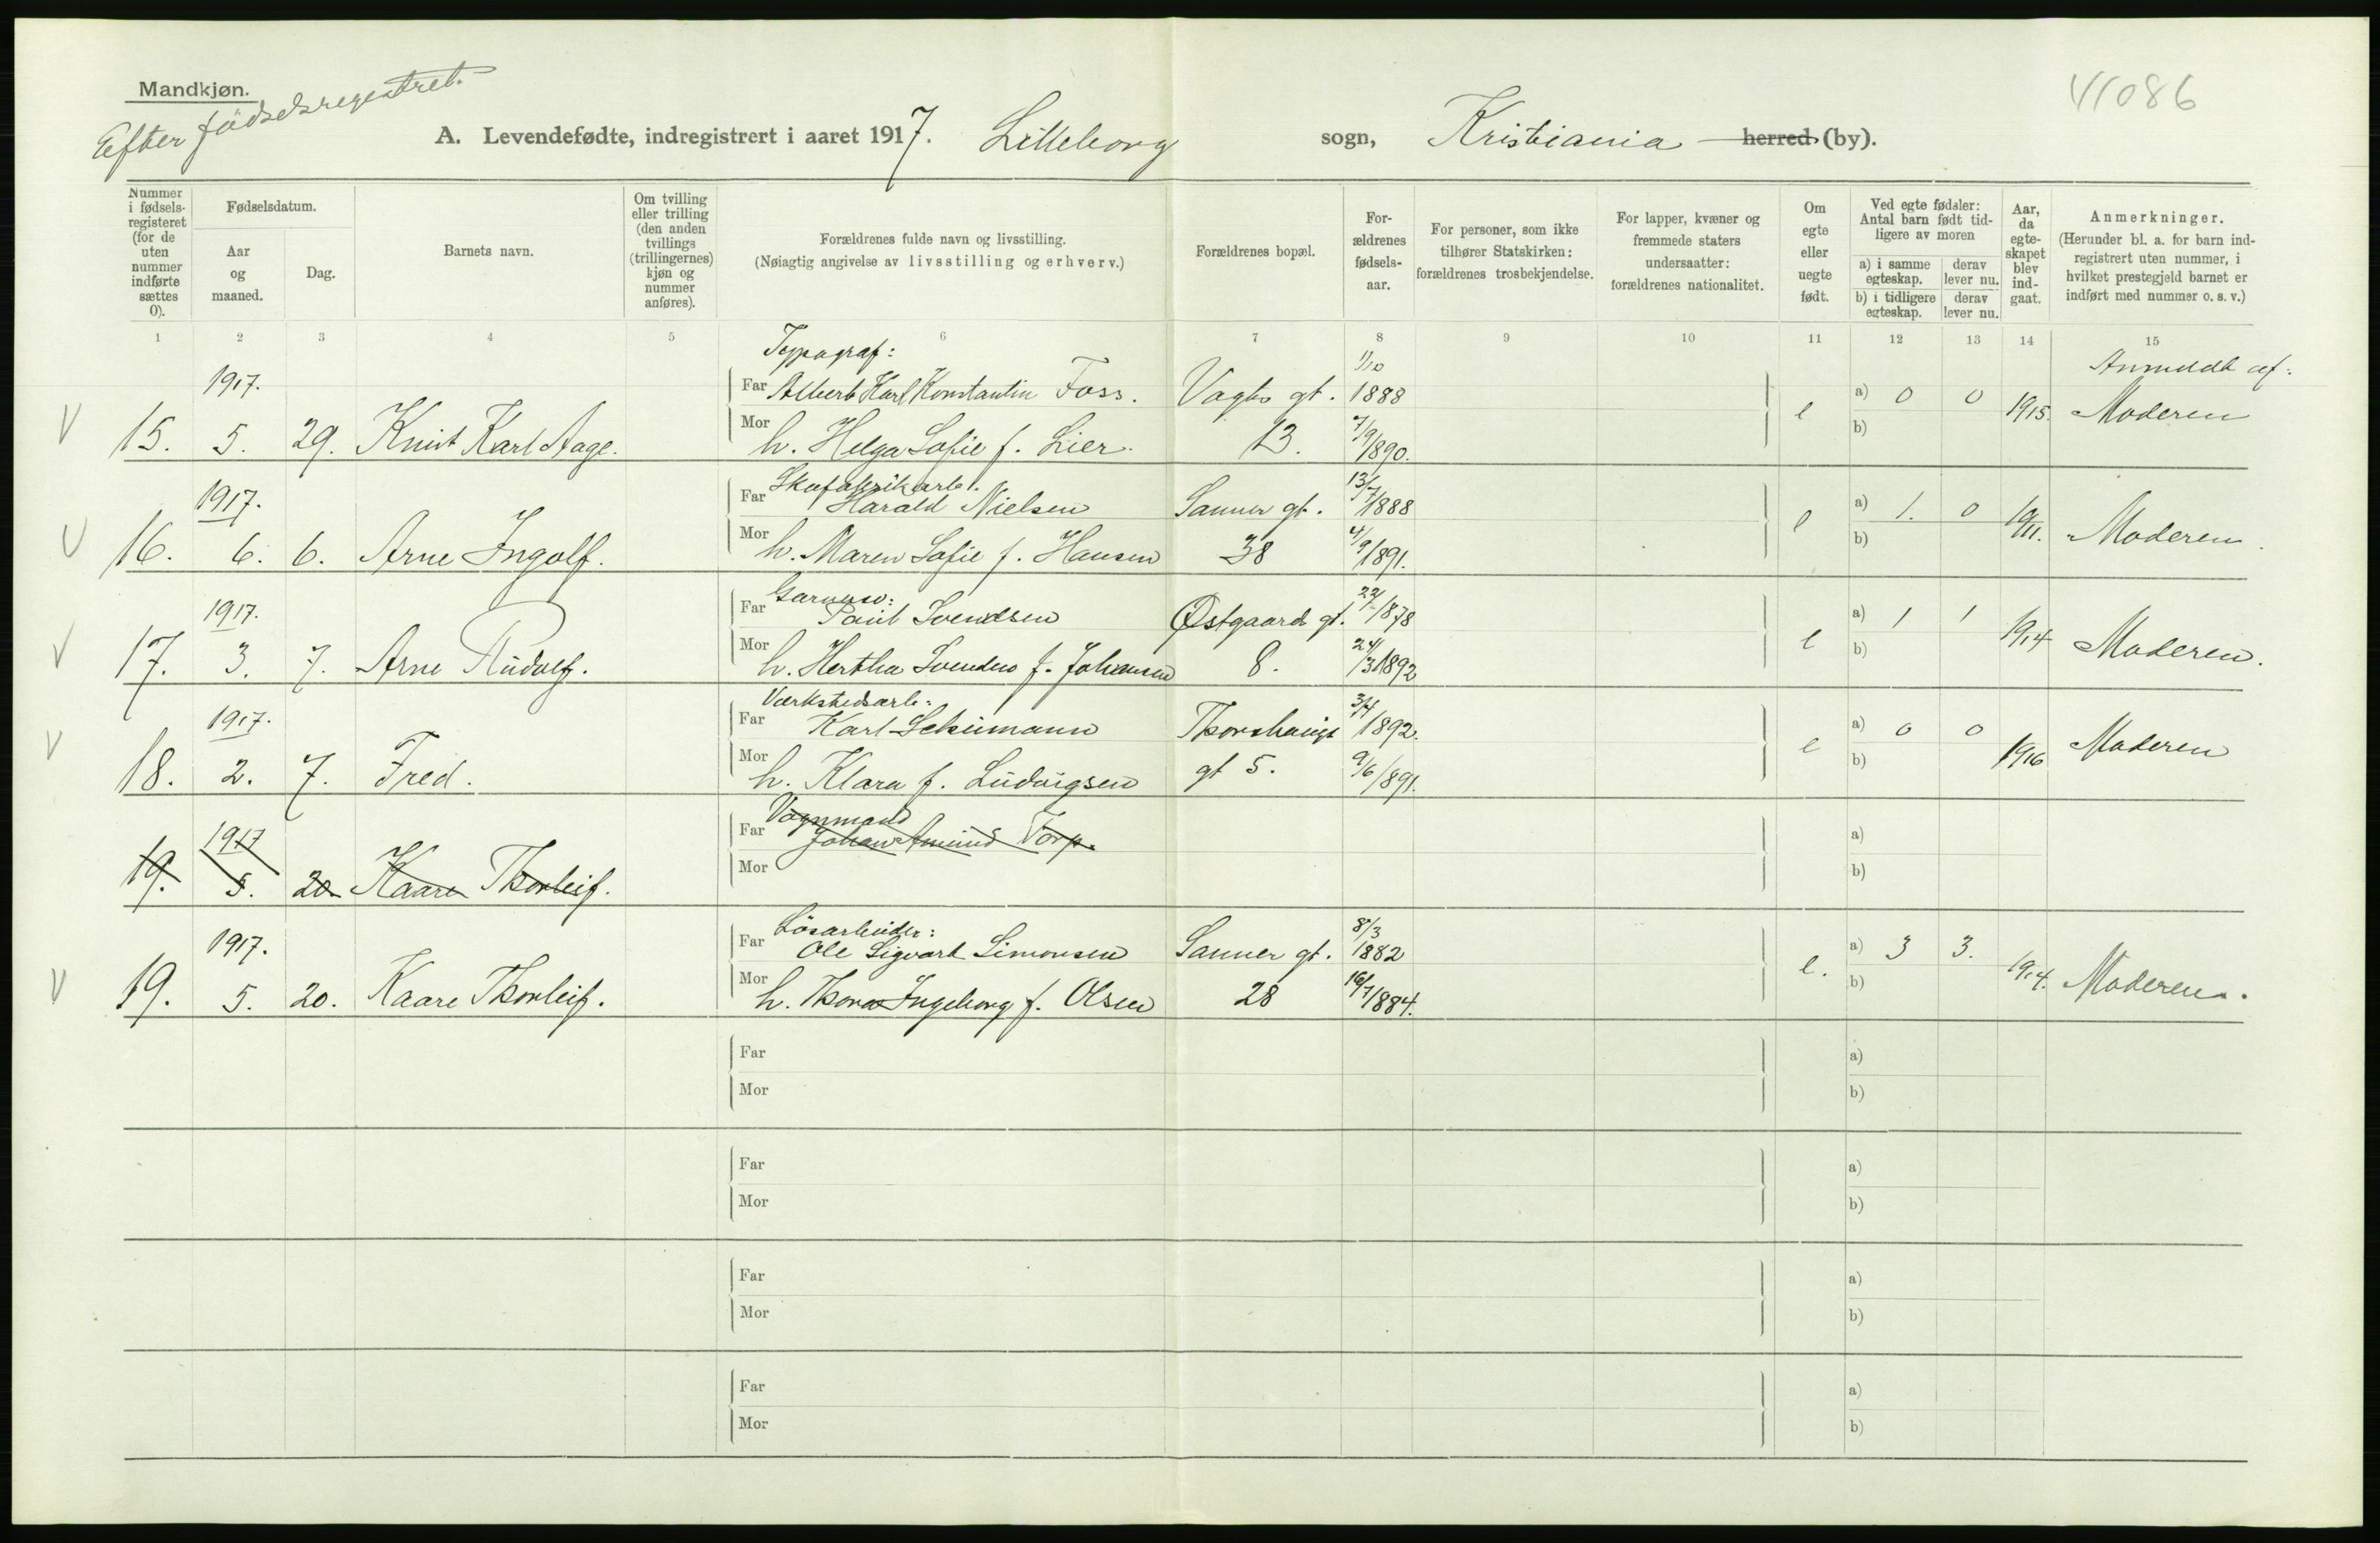 Mandkjøn.
Efter fødselsregistret.
V1086
A. Levendefødte, indregistrert i aaret 1917. Lilleborg sogn, Kristiania herred (by).
Nummer i fødsels-registeret (for de uten nummer indførte sættes 0).
Fødselsdatum.
Aar og maaned.
Dag.
Barnets navn.
Om tvilling eller trilling (den anden tvillings (trillingernes) kjøn og nummer anføres).
Forældrenes fulde navn og livsstilling.
(Nøiagtig angivelse av livsstilling og erhverv.)
Forældrenes bopæl.
For-ældrenes fødsels-aar.
For personer, som ikke tilhører Statskirken: forældrenes trosbekjendelse.
For lapper, kvæner og fremmede staters undersaatter: forældrenes nationalitet.
Om egte eller uegte født.
Ved egte fødsler: Antal barn født tid-ligere av moren
a) i samme egteskap.
derav lever nu.
b) i tidligere egteskap.
derav lever nu.
Aar, da egte-skapet blev ind-gaat.
Anmerkninger.
(Herunder bl. a. for barn ind-registrert uten nummer, i hvilket prestegjeld barnet er indført med nummer o. s. v.)
1 2 3 4 5 6 7 8 9 10 11 12 13 14 15
Typograf: 1/10 Anmeldt af:
1917. Far Albert Karl Konstantin Foss. Vagts gt. 1888 a) 0 0
V 15. 5. 29. Knut Karl Aage. Mor h. Helga Sofie f. Lier. 13. 7/9 1890. e b) 1915. Moderen
Skofabrikarb. 13/7
1917. Far Harald Nielsen Sanner gt. 1888 a) 1. 0
V 16. 6. 6. Arne Ingolf. Mor h. Maren Sofie f. Hansen 38 4/9 1891. e b) 1911. Moderen.
1917. Far Paul Svendsen Østgaards gt. 1878 a) 1 1
V 17. 3. 7. Arne Rudolf. Mor h. Hertha Svendsen f. Johansen 8. 24/3 1892 e b) 1914 Moderen.
Værkstedsarb: 3/4
1917. Far Karl Schumann Thorshaugs 1892. a) 0 0
V 18. 2. 7. Fred. Mor h. Klara f. Ludvigsen gt 5. 9/6 1891. e b) 1916 Moderen
Vognmand
1917 Far Johan Amund Torp. a)
19. 5. 20. Kaare Thorleif. Mor b)
Løsarbeider: 8/3
1917. Far Ole Sigvart Simonsen Sanner gt. 1882 a) 3 3.
V 19. 5. 20. Kaare Thorleif. Mor h. Thora Ingeborg f. Olsen 28 16/7 1884. e. b) 1914. Moderen.
Far a)
Mor b)
Far a)
Mor b)
Far a)
Mor b)
Far a)
Mor b)